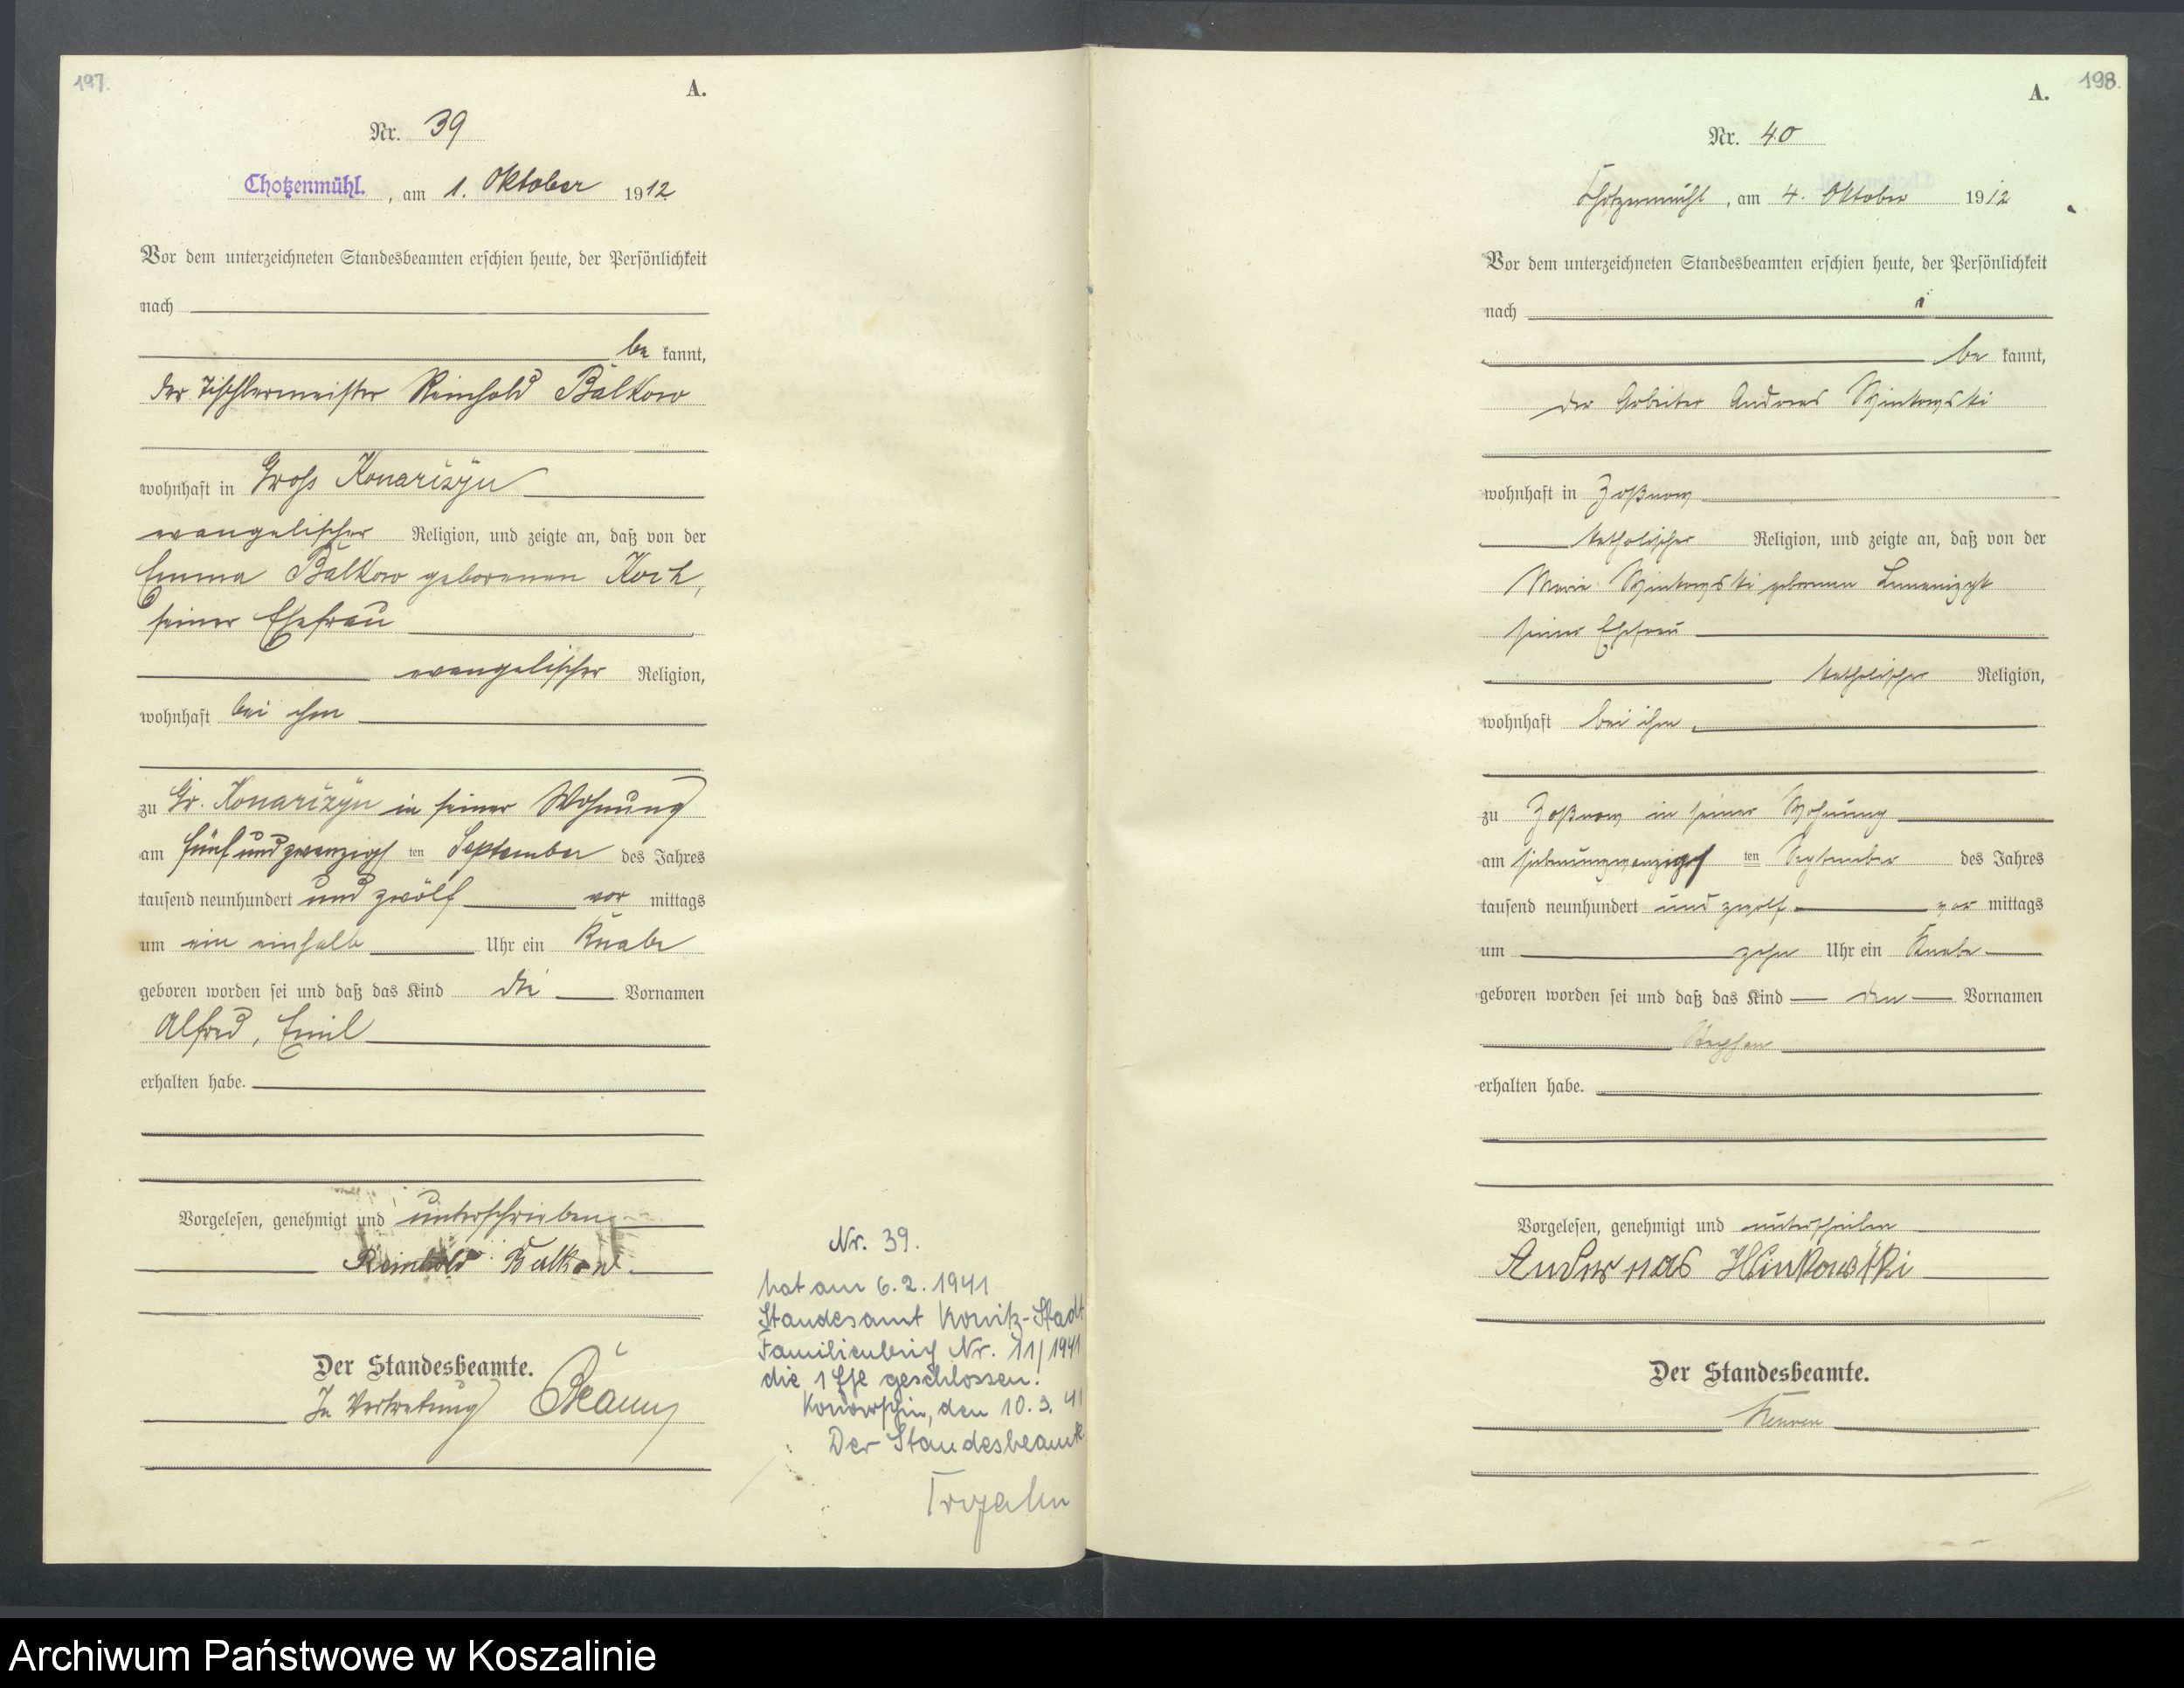 197.
A.
Nr. 39
Chotzenmühl. , am 1. Oktober 1912
Vor dem unterzeichneten Standesbeamten erschien heute, der Persönlichkeit
nach
be kannt,
der Tischlermeister Reinhold Balkow
wohnhaft in Gross Konarczyn
evangelischer Religion, und zeigte an, daß von der
Emma Balkow geborenen Koch,
seiner Ehefrau
evangelischer Religion,
wohnhaft bei ihm
zu Gr. Konarczyn in seiner Wohnung
am fünfundzwanzigs ten September des Jahres
tausend neunhundert und zwölf vor mittags
um ein einhalb Uhr ein Knabe
geboren worden sei und daß das Kind die Vornamen
Alfred, Emil
erhalten habe.
Vorgelesen, genehmigt und unterschrieben
Reinhold Balkow.
Der Standesbeamte.
In Vertretung
Nr. 39.
hat am 6.2.1941
Standesamt Konitz-Stadt
Familienbuch Nr. 11/1941
die 1 Ehe geschlossen.
den 10.3.41
Der Standesbeamte
198.
A.
Nr. 40
Chotzenmühl , am 4. Oktober 1912
Vor dem unterzeichneten Standesbeamten erschien heute, der Persönlichkeit
nach
be kannt,
der Arbeiter Andreas
wohnhaft in
katholischer Religion, und zeigte an, daß von der
Maria geborenen
seiner Ehefrau
katholischer Religion,
wohnhaft bei ihm
zu in seiner Wohnung
am siebenundzwanzigs ten September des Jahres
tausend neunhundert und zwölf vor mittags
um zehn Uhr ein Knabe
geboren worden sei und daß das Kind den Vornamen
Stephan
erhalten habe.
Vorgelesen, genehmigt und unterschrieben
Der Standesbeamte.
Archiwum Państwowe w Koszalinie